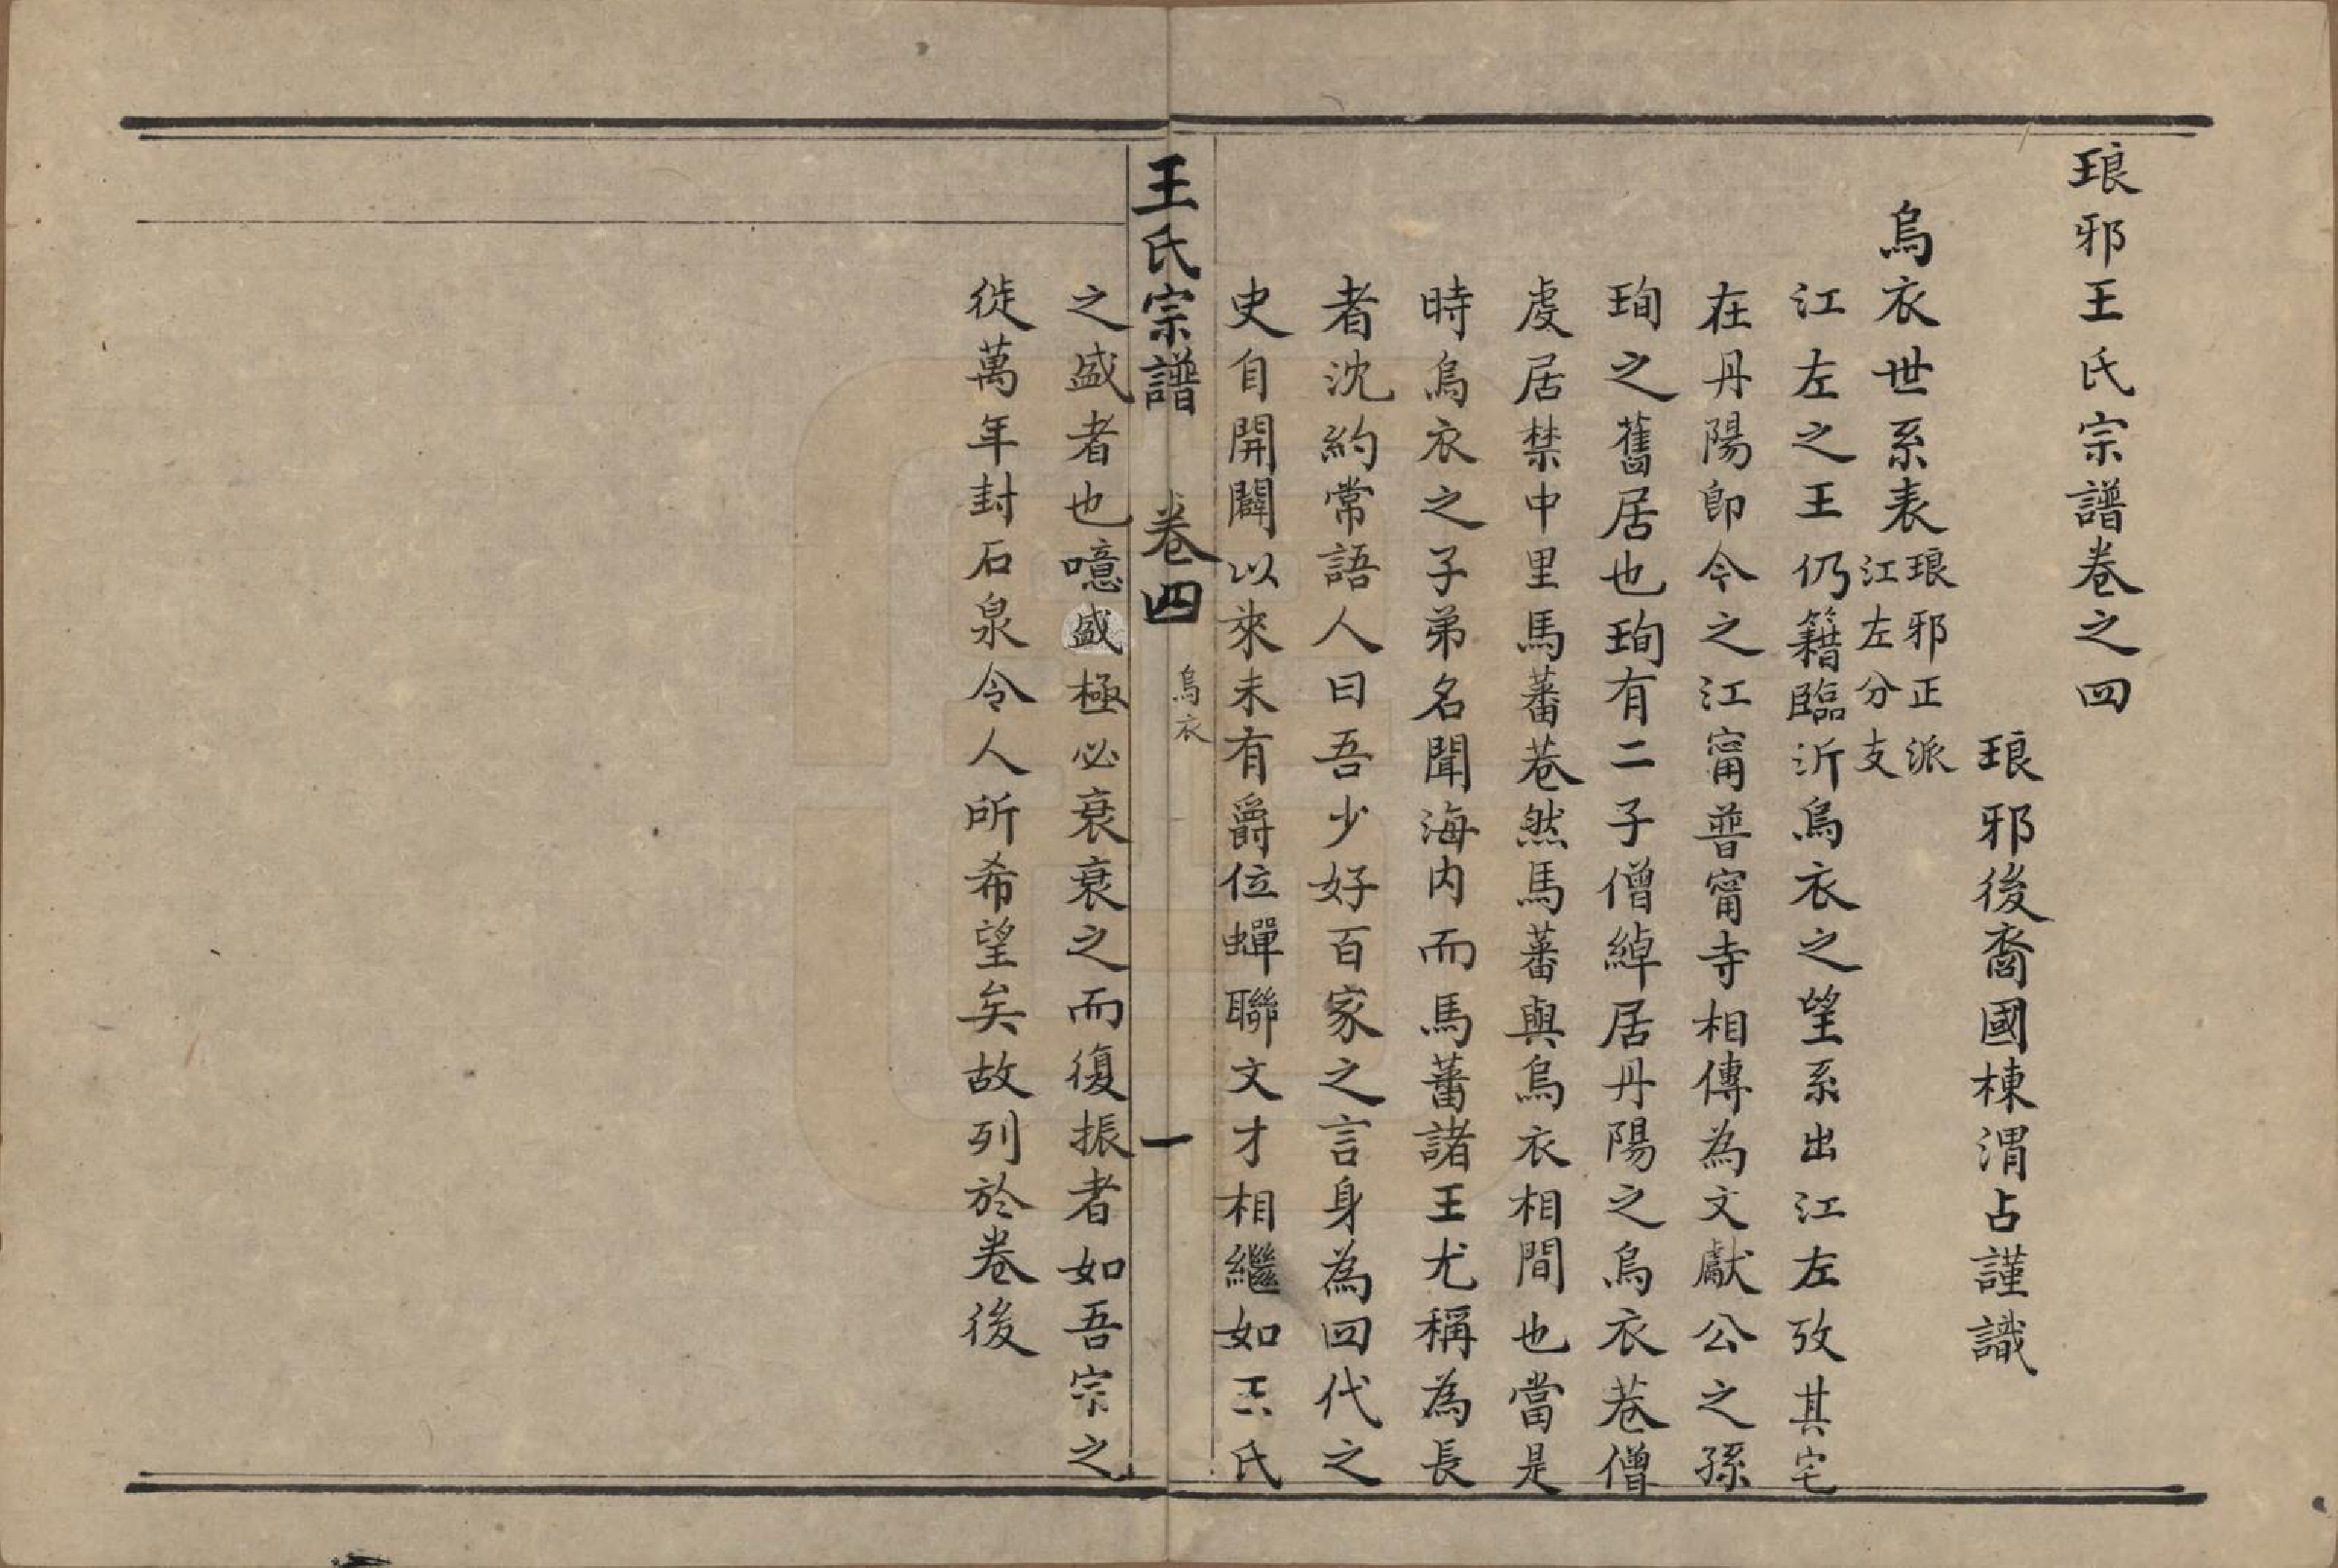 琅邪王氏宗譜卷之四
琅邪後裔國棟渭占謹識
烏衣世系表
琅邪正派
江左分支
江左之王仍籍臨沂烏衣之望系出江左攷其宅
在丹陽即今之江甯普甯寺相傳為文獻公之孫
珣之舊居也珣有二子僧綽居丹陽之烏衣巷僧
虔居禁中里馬蕃巷然馬蕃與烏衣相間也當是
時烏衣之子弟名聞海内而馬蕃諸王尤稱為長
者沈約常語人曰吾少好百家之言身為四代之
史自開闢以來未有爵位蟬聯文才相繼如王氏
王氏宗譜 卷四 烏衣 一
之盛者也噫盛極必衰衰之而復振者如吾宗之
徙萬年封石泉令人所希望矣故列於卷後